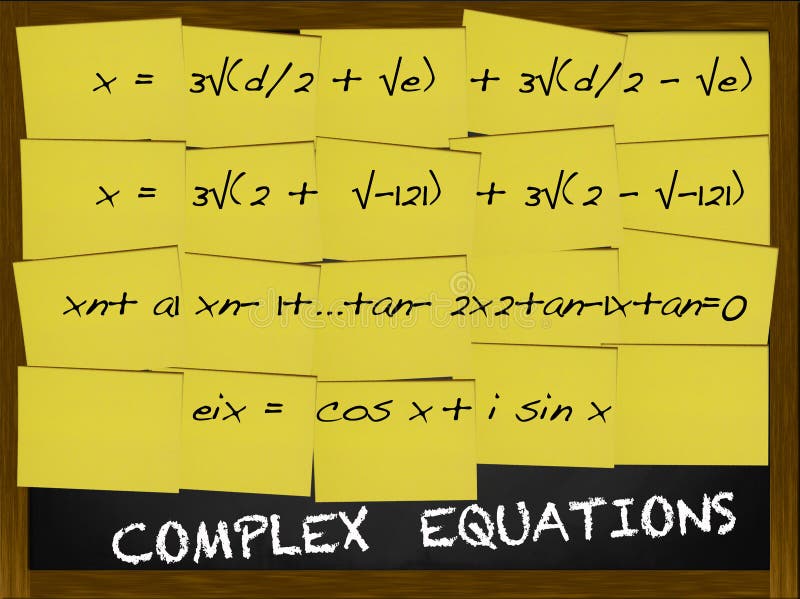 x = 3√(d/2 + √e) + 3√(d/2 - √e)
x = 3√(2 + √-121) + 3√(2 - √-121)
xn+ a1 xn- 1+...+an- 2x2+an-1x+an=0
eix = cos x + i sin x
COMPLEX EQUATIONS
dreamstime.com